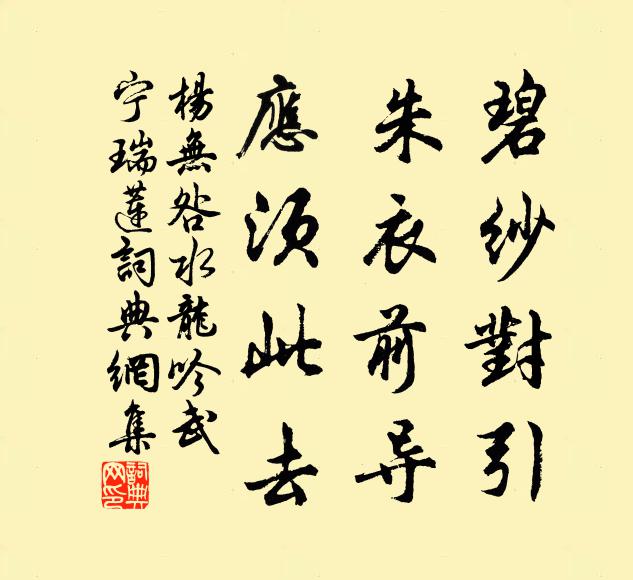 碧纱對引
朱衣前导
應须此去
楊無咎水龍吟武
宁瑞蓮詞典網集
詞典网印